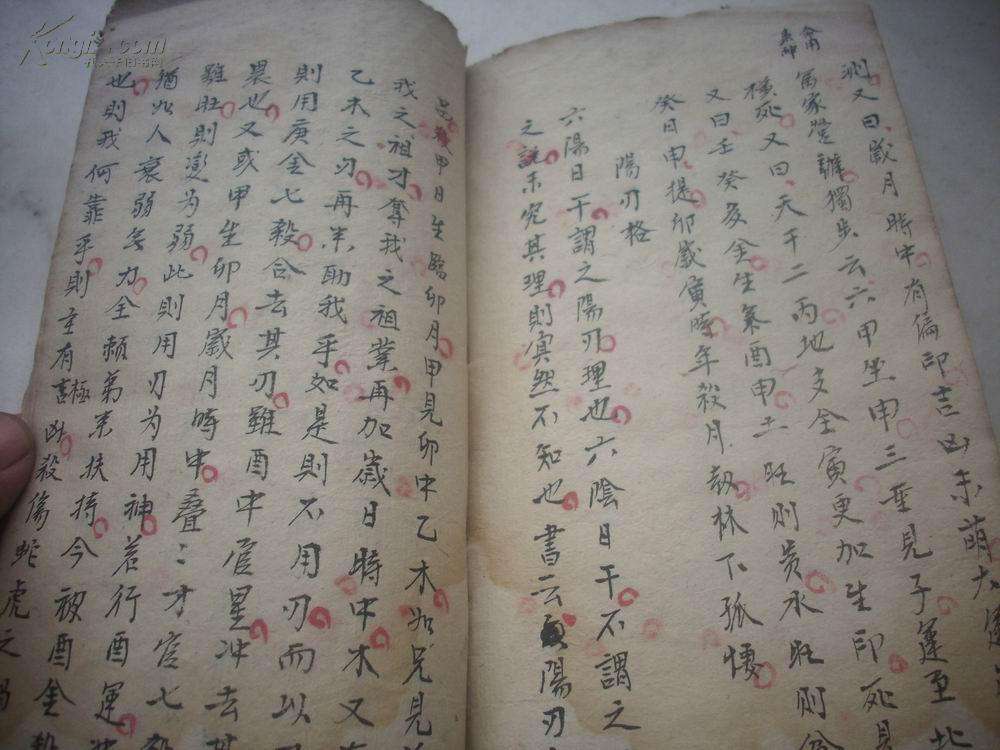 測又曰歲月時中有偏印吉凶未萌大運
富家營辦獨步云六甲坐申三重見子運至北
橫死又曰天干二丙地支全寅更加生印死見
又曰壬癸亥金生氣酉申土旺則貴水旺則
癸日申提卯歲寅時年殺月劫林下孤悽
陽刃格
六陽日干謂之陽刃理也六陰日干不謂之
之說未究其理則冥然不知也書云陽刃
甲日生臨卯月甲見卯中乙木如兄見
我之祖才奪我之祖業再加歲日時中木又
乙木之刃再來助我乎如是則不用刃而以
則用庚金七殺合去其刃雖酉中官星冲去
畏也又或甲生卯月歲月時中叠〻才官七
雖旺則變为弱此則用刃为用神若行酉運
猶如人衰弱无力全賴弟來扶持今被酉金殺
也則我何靠乎則主有極凶殺傷蛇虎之
Kongfz.com